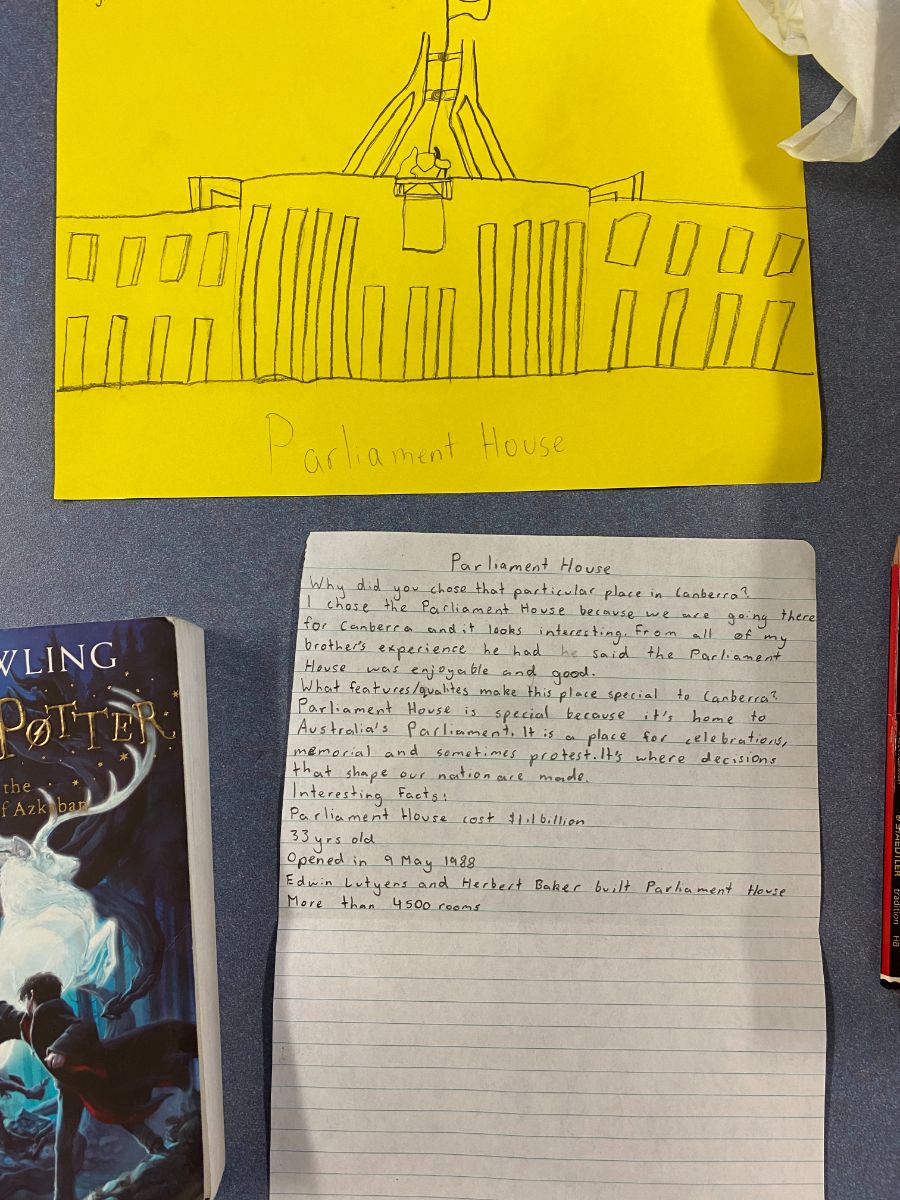 Parliament House
Parliament House
Why did you chose that particular place in Canberra?
I chose the Parliament House because we are going there
for Canberra and it looks interesting. From all of my
brother's experience he had he said the Parliament
House was enjoyable and good.
What features/qualites make this place special to Canberra?
Parliament House is special because it's home to
Australia's Parliament. It is a place for celebrations,
memorial and sometimes protest. It's where decisions
that shape our nation are made.
Interesting Facts:
Parliament House cost $1.1 billion
33 yrs old
Opened in 9 May 1988
Edwin Lutyens and Herbert Baker built Parliament House
More than 4500 rooms
WLING
POTTER
the
f Azkaban
STAEDTLER tradition HB